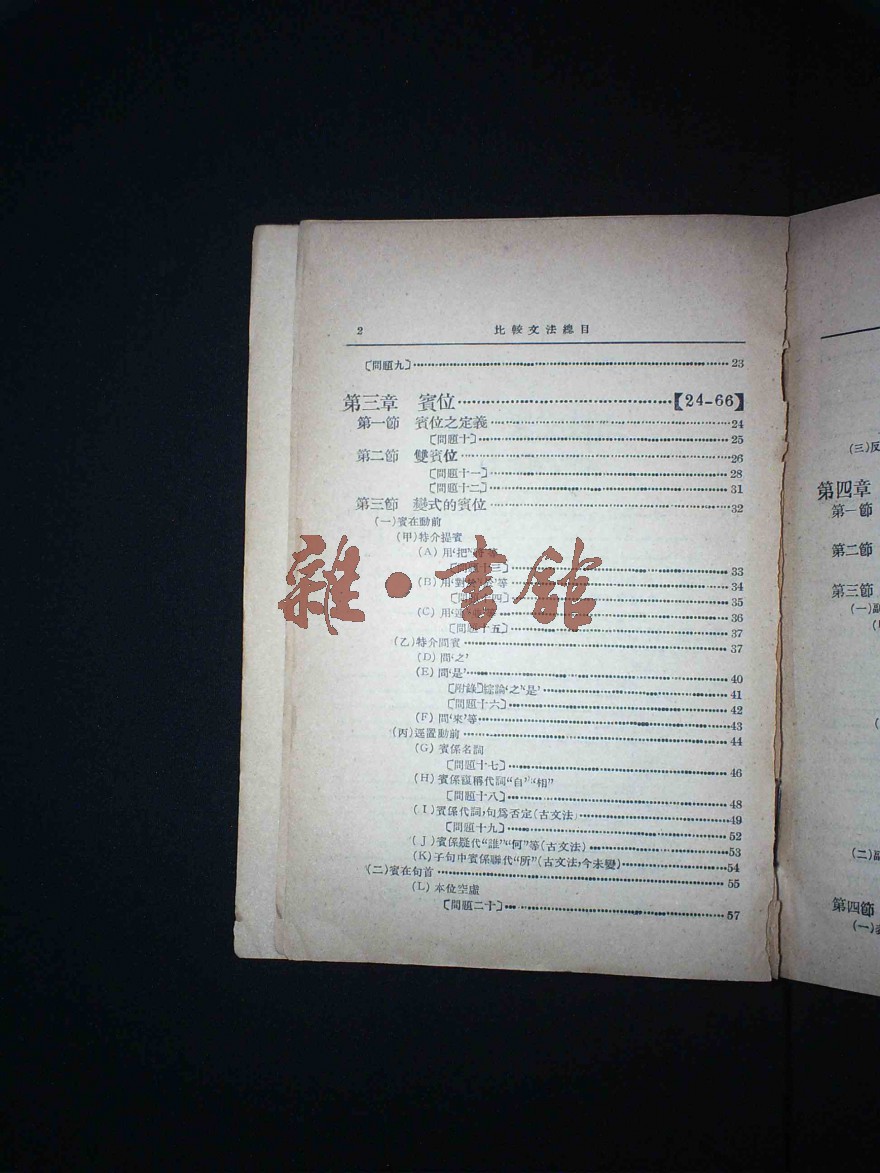 2 比較文法總目
〔問題九〕 23
第三章 賓位 【24-66】
第一節 賓位之定義 24
〔問題十〕 25
第二節 雙賓位 26
〔問題十一〕 28
〔問題十二〕 31
第三節 變式的賓位 32
(一)賓在動前
(甲)特介提賓
(A) 用‘把’
十三〕 33
(B) 用‘對 等 34
四〕 35
(C) 用 36
〔問題十五〕 37
(乙)特介間賓 37
(D) 間‘之’
(E) 間‘是’ 40
〔附錄〕綜論‘之’‘是’ 41
〔問題十六〕 42
(F) 間‘來’等 43
(丙)逕置動前 44
(G) 賓係名詞
〔問題十七〕 46
(H) 賓係複稱代詞“自”“相”
〔問題十八〕 48
(I) 賓係代詞,句爲否定(古文法) 49
〔問題十九〕 52
(J) 賓係疑代“誰”“何”等(古文法) 53
(K) 子句中賓係聯代“所”(古文法,今未變) 54
(二)賓在句首 55
(L) 本位空虛
〔問題二十〕 57
雜·書館
(三)反
第四章
第一節
第二節
第三節
(一)副
(二)副
第四節
(一)